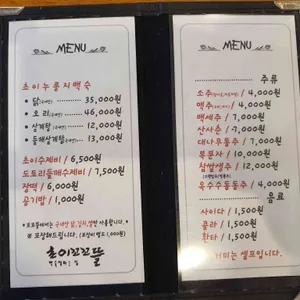 MENU
초이누룽지백숙
• 닭 35,000원
• 오리 46,000원
• 삼계탕 12,000원
• 들깨삼계탕 13,000원
초이수제비 / 6,500원
도토리들깨수제비 / 7,500원
장떡 / 6,000원
공기밥 / 1,000원
초이꼬꼬뜰
MENU
주류
소주 / 4,000원
맥주 / 4,000원
백세주 / 7,000원
산사춘 / 7,000원
대나무통주 / 7,000원
복분자 / 10,000원
찹쌀생주 / 12,000원
옥수수동동주 / 4,000원
음료
사이다 / 1,500원
콜라 / 1,500원
환타 / 1,500원
커피는 셀프입니다.